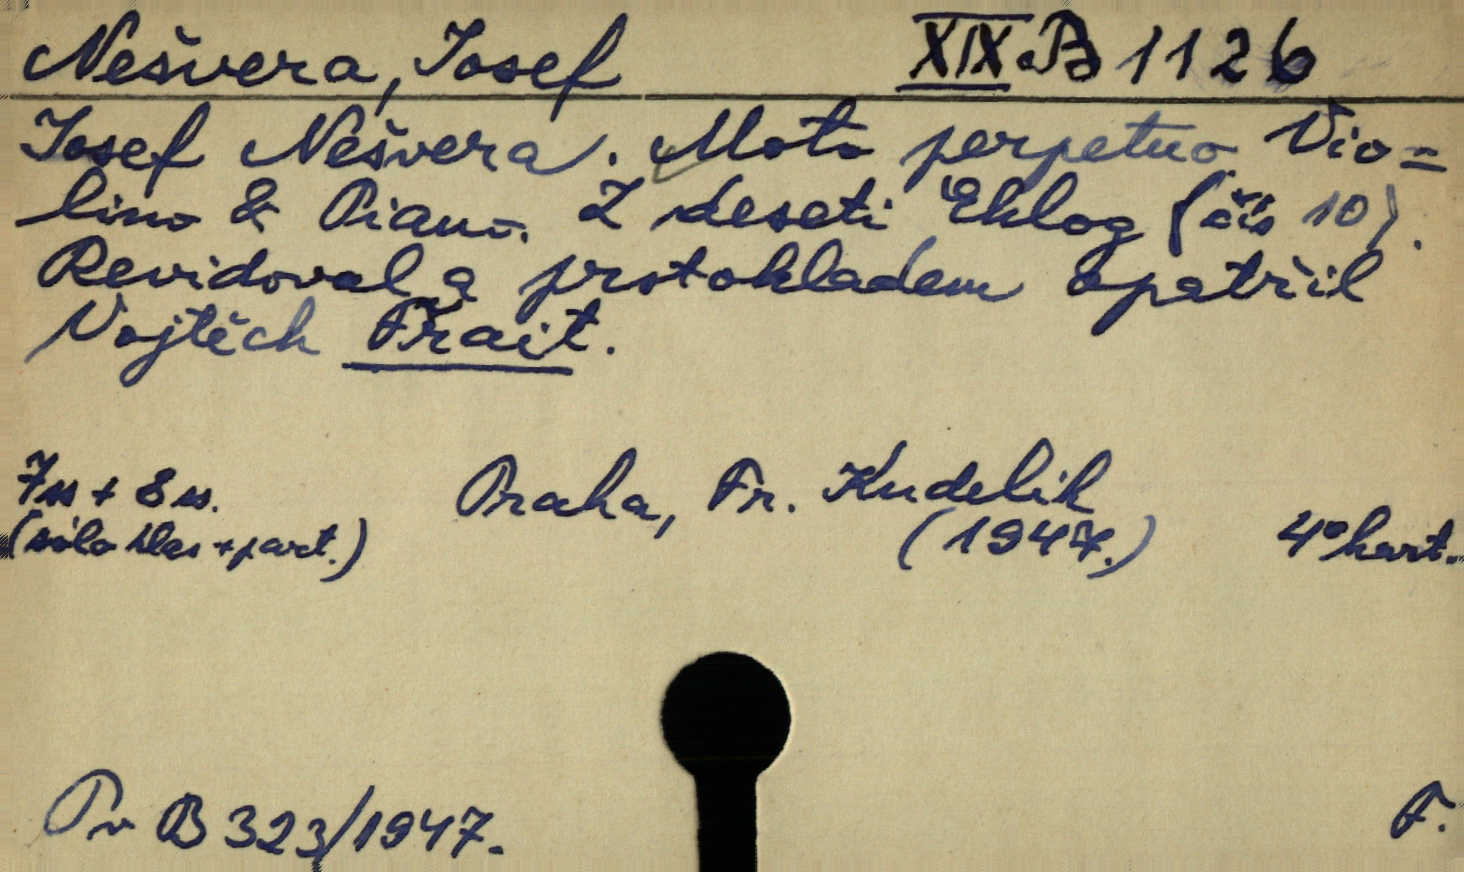 Nešvera, Josef XIX.B 1126
Josef Nešvera. Moto perpetuo Vio=
lino & Piano. Z deseti Eklog (čís 10).
Revidoval a prstokladem opatřil
Vojtěch Frait.
7 ss + 8 ss. Praha, Fr. Kudelík
(sólo hlas + part.) (1947.) 4° kart.
Pr B 323/1947. F.